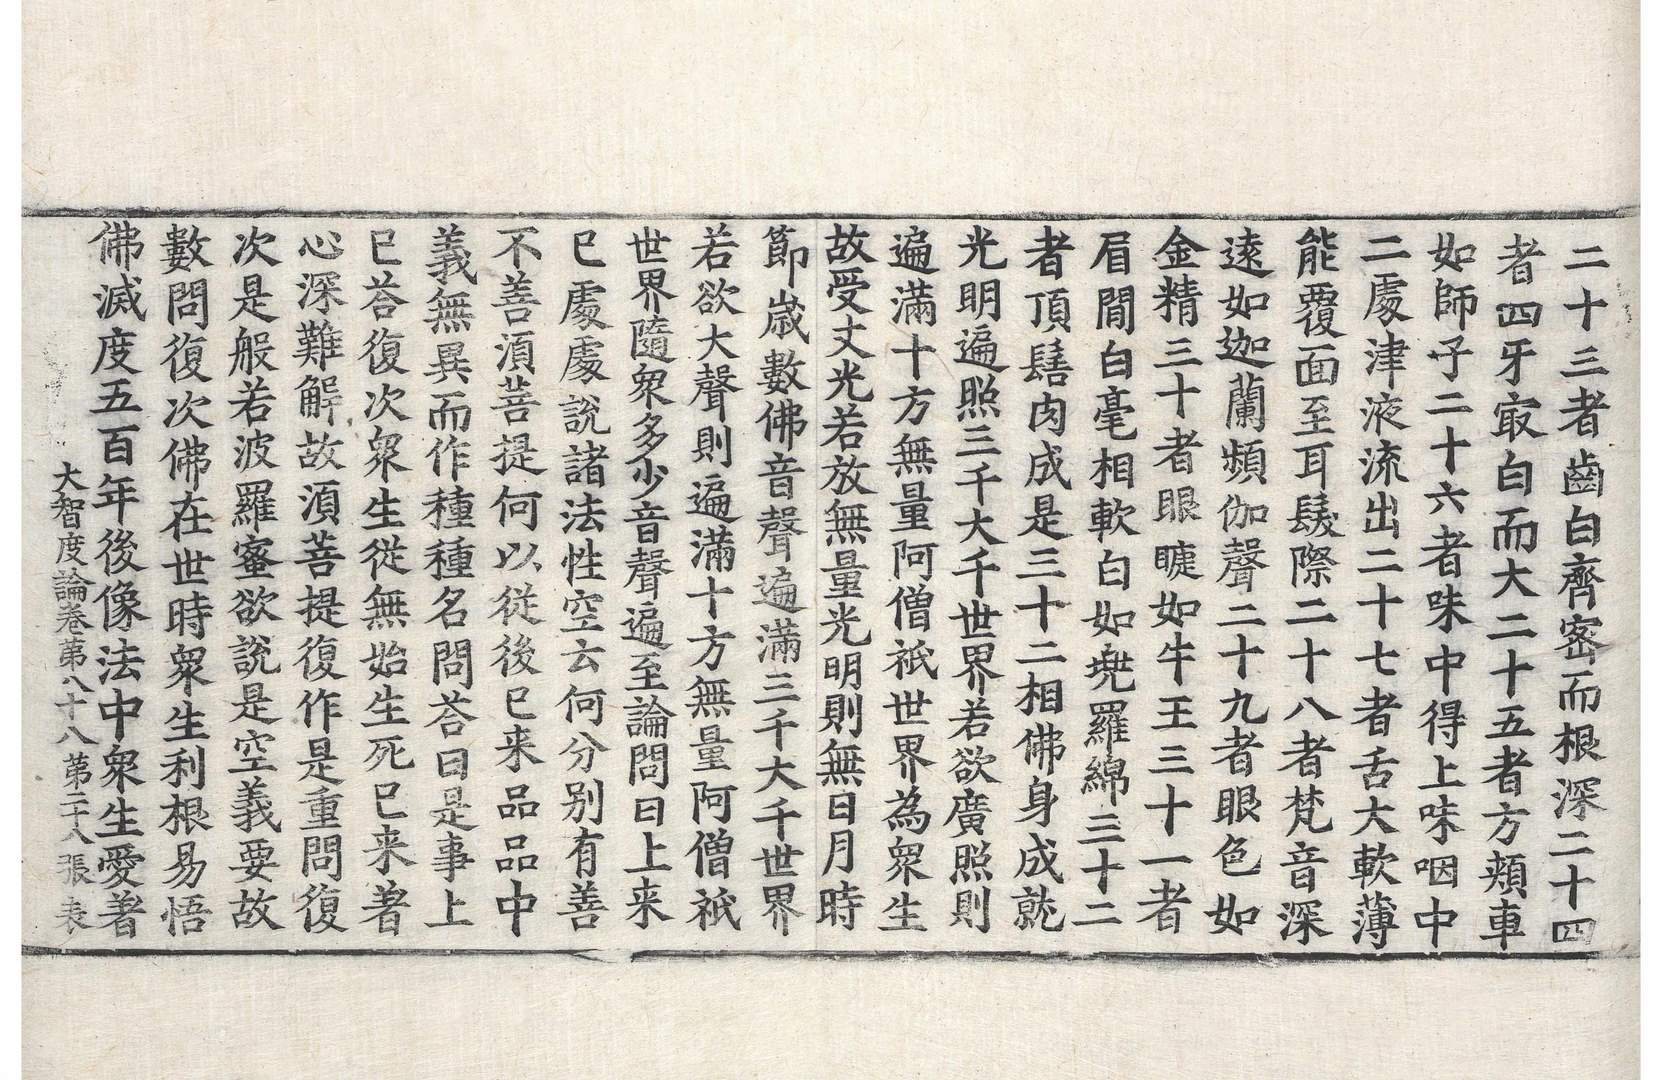 二十三者齒白齊密而根深二十四
者四牙㝡白而大二十五者方頰車
如師子二十六者味中得上味咽中
二處津液流出二十七者舌大軟薄
能覆面至耳髮際二十八者梵音深
遠如迦蘭頻伽聲二十九者眼色如
金精三十者眼睫如牛王三十一者
眉閒白毫相軟白如兜羅綿三十二
者頂髻肉成是三十二相佛身成就
光明遍照三千大千世界若欲廣照則
遍滿十方無量阿僧祇世界為衆生
故受丈光若放無量光明則無日月時
節歳數佛音聲遍滿三千大千世界
若欲大聲則遍滿十方無量阿僧祇
世界隨衆多少音聲遍至論問曰上来
已處處說諸法性空云何分別有善
不善湏菩提何以從後已来品品中
義無異而作種種名問荅曰是事上
已荅復次衆生從無始生死已来著
心深難解故湏菩提復作是重問復
次是般若波羅蜜欲說是空義要故
數問復次佛在世時衆生利根易悟
佛滅度五百年後像法中衆生愛著
大智度論卷第八十八 第二十八張 表